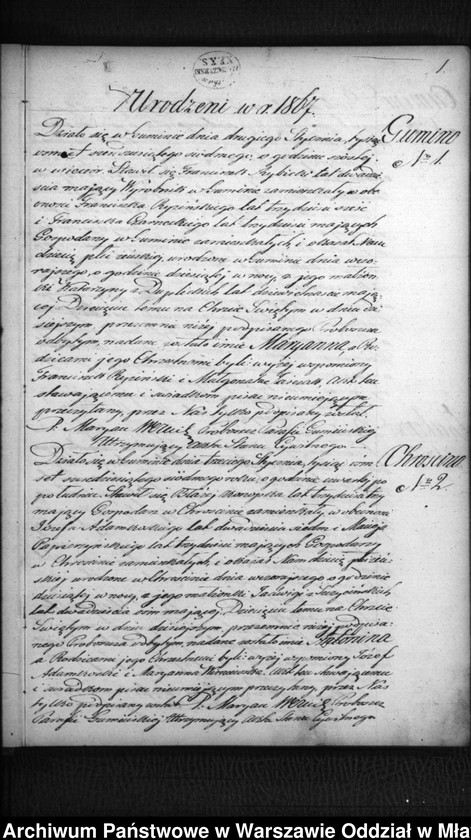 1.
Urodzeni w r 1867.
Gumino
N 1.
Działo się w Guminie dnia drugiego Stycznia, tysiąc
ośmset sześćdziesiątego siódmego, o godzinie szóstej
w wieczór. Stawił się Franciszek lat dwadzie
ścia mający Wyrobnik w Guminie zamieszkały w obe
cności Franciszka Rzezińskiego lat trzydzieści sześć
i Franciszka Czarneckiego lat trzydzieści mających
Gospodarzy w Guminie zamieszkałych, i okazał Nam
dziecię płci żeńskiej, urodzone w Guminie dnia wczo
rajszego, o godzinie dziesiątej w nocy, z jego małżon
ki Katarzyny z lat dziewiętnaście mają
cej. Dziecięciu temu na Chrzcie Świętym w dniu dzi
siejszym, przez nas niżej podpisanego Proboszcza
odbytym, nadane zostało imie Maryanna, a Ro
dzicami jego Chrzestnemi byli: wyżej wspomniony
Franciszek Rzeziński i Małgorzata Akt ten
stawającemu i świadkom pisać nieumiejącym
przeczytany, przez Nas tylko podpisany został.
X. Maryan Proboszcz Parafii Gumińskiej
Utrzymujący Akta Stanu Cywilnego
Chroscino
N 2
Działo się w Guminie dnia trzeciego Stycznia, tysiąc ośm
set sześćdziesiątego siódmego roku, o godzinie czwartej po
południu. Stawił się Błażej lat trzydzieści trzy
mający Gospodarz w Chroscinie zamieszkały, w obecności
Józefa Adamkowskiego lat dwadzieścia siedm i Macieja
lat trzydzieści mających Gospodarzy
w Chroscinie zamieszkałych, i okazał Nam dziecię płci żeń
skiej urodzone w Chroscinie dnia wczorajszego o godzinie
dziesiątej w nocy, z jego małżonki Jadwigi z
lat dwadzieścia ośm mającej. Dziecięciu temu na Chrzcie
Świętym w dniu dzisiejszym, przez nas niżej podpisa
nego Proboszcza odbytym, nadane zostało imie Antonina
a Rodzicami jego Chrzestnemi byli: wyżej wspomniony Józef
Adamkowski i Maryanna Akt ten stawającemu
i świadkom pisać nieumiejącym przeczytany, przez Nas
tylko podpisany został. X. Maryan Proboszcz
Parafii Gumińskiej Utrzymujący Akta Stanu Cywilnego
Archiwum Państwowe w Warszawie Oddział w Mła